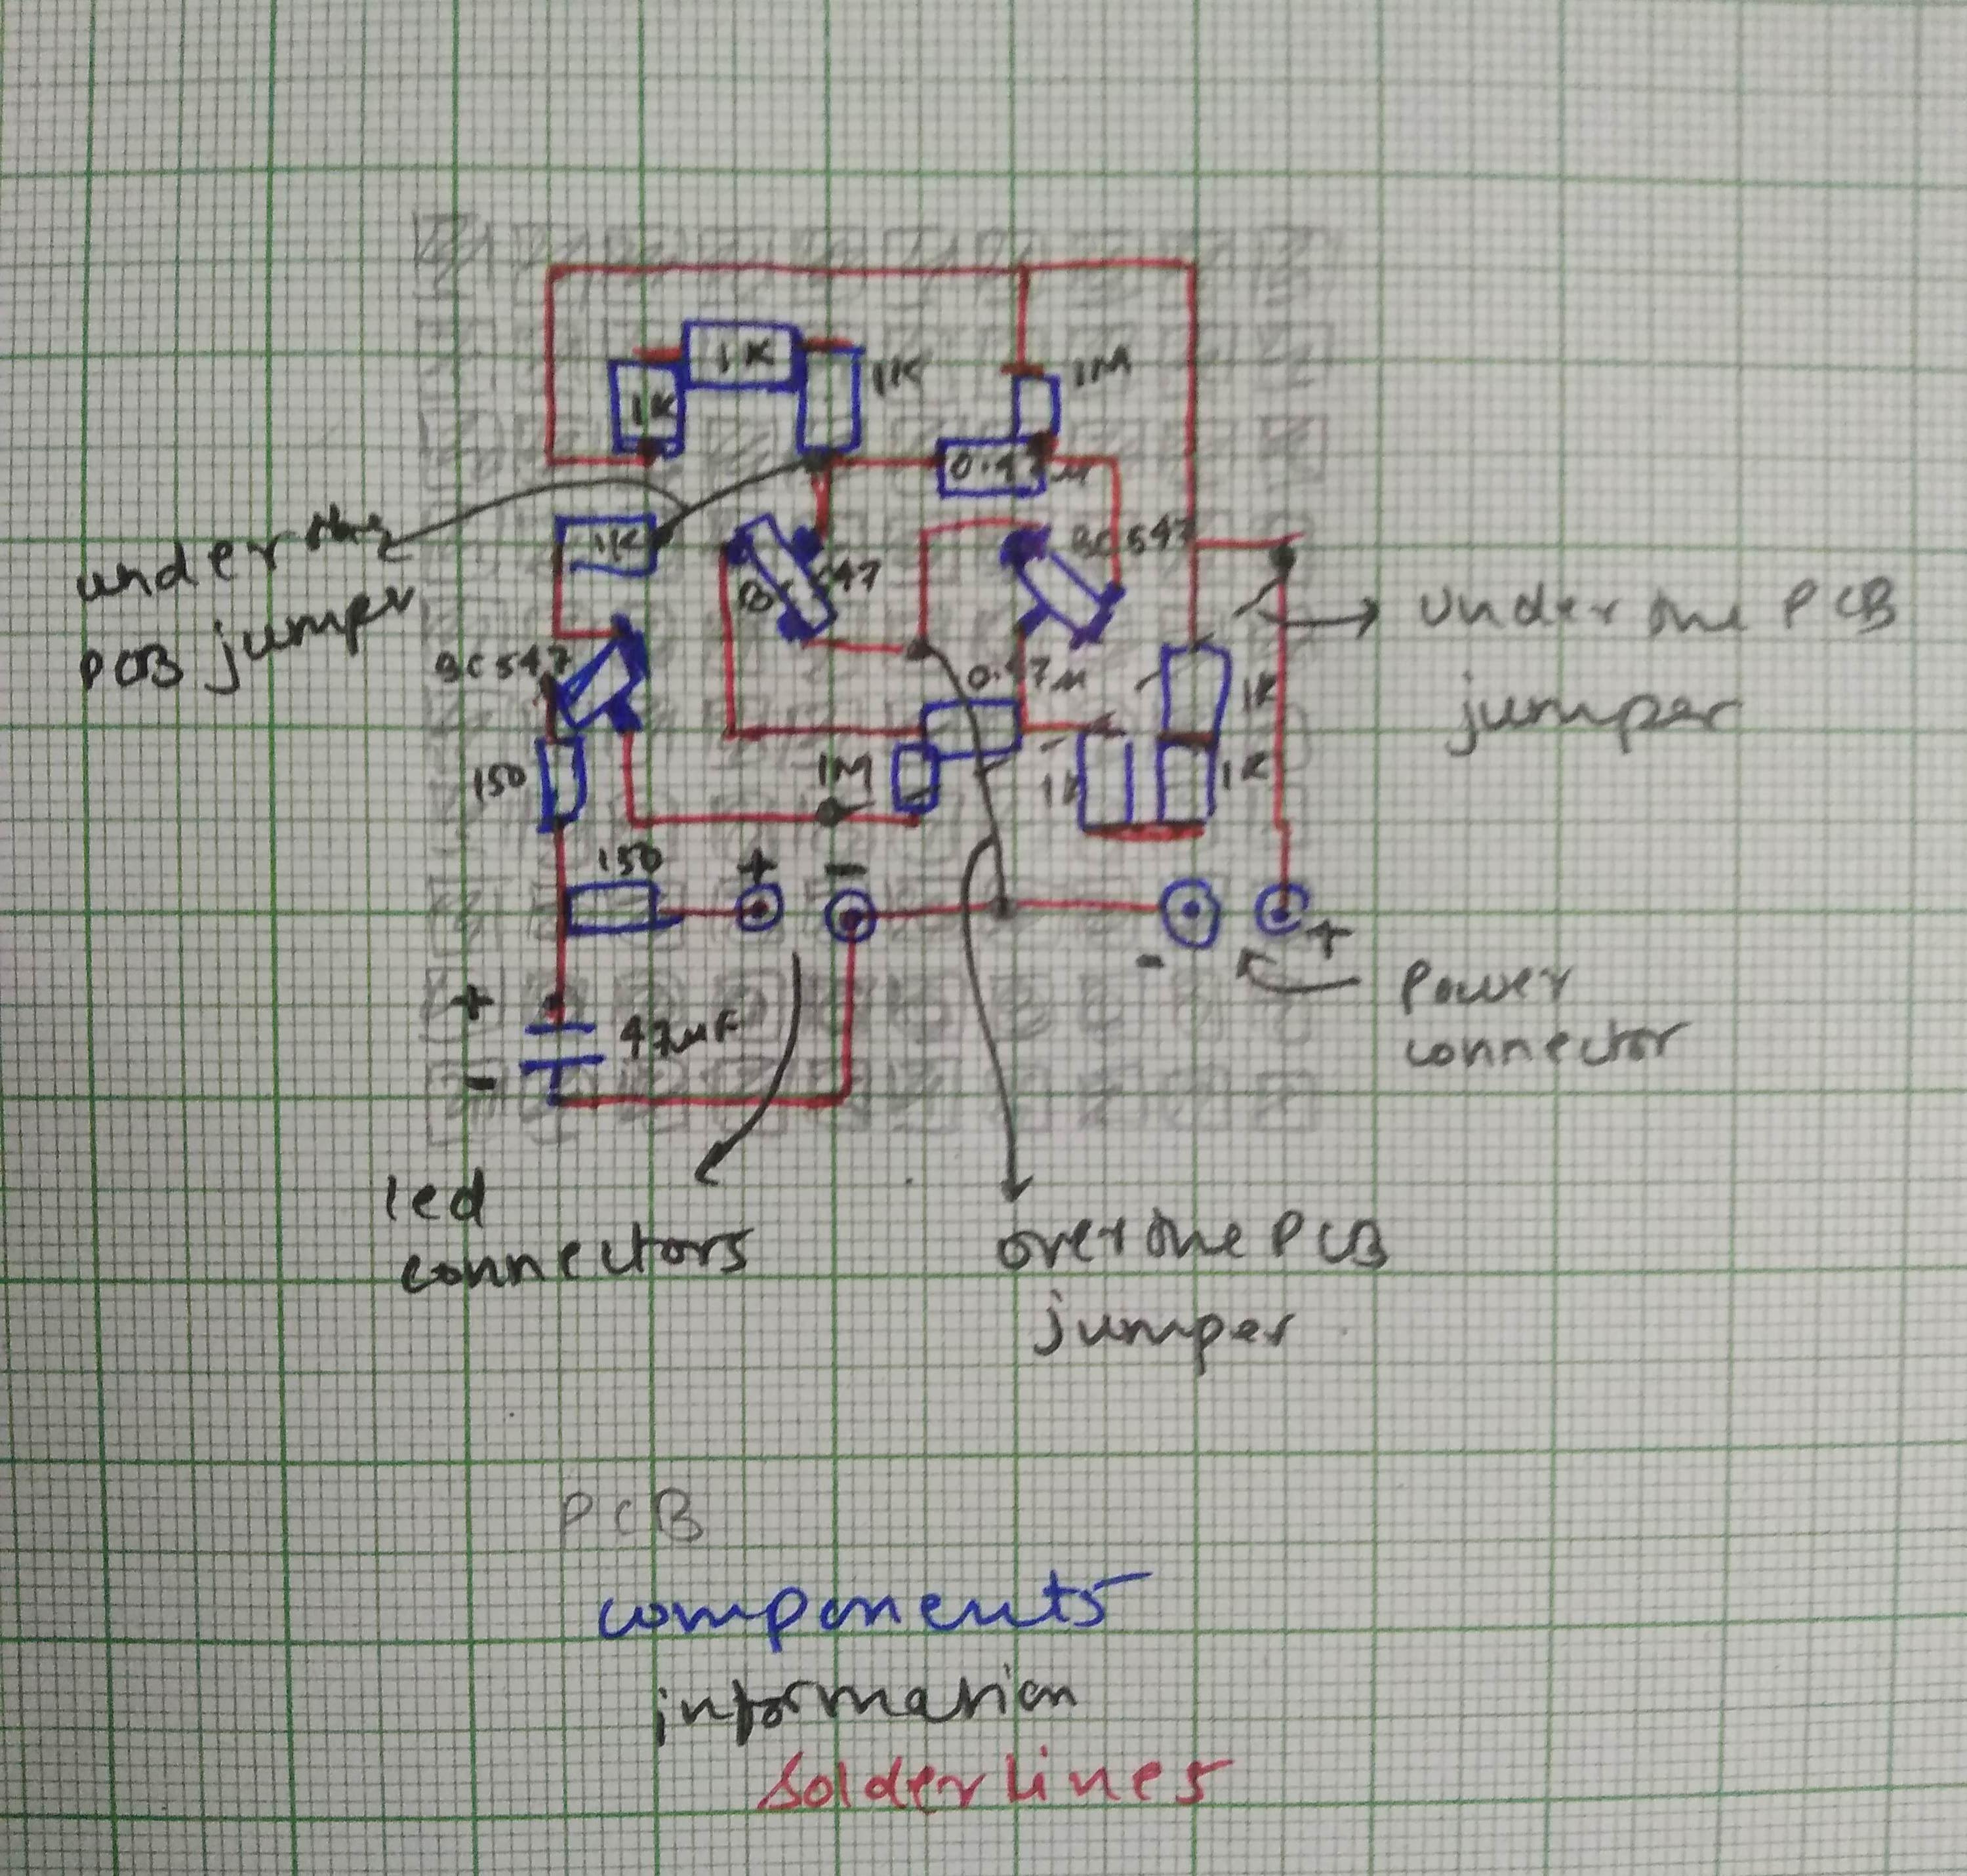 1K
1K
1K
1M
0.47µ
under the
PCB jumper
1K
BC547
BC547
under the PCB
jumper
BC547
0.47µ
1K
150
1M
1K
1K
150
+ -
- +
Power
connector
+
47µF
-
led
connectors
over the PCB
jumper
PCB
components
information
Solder lines